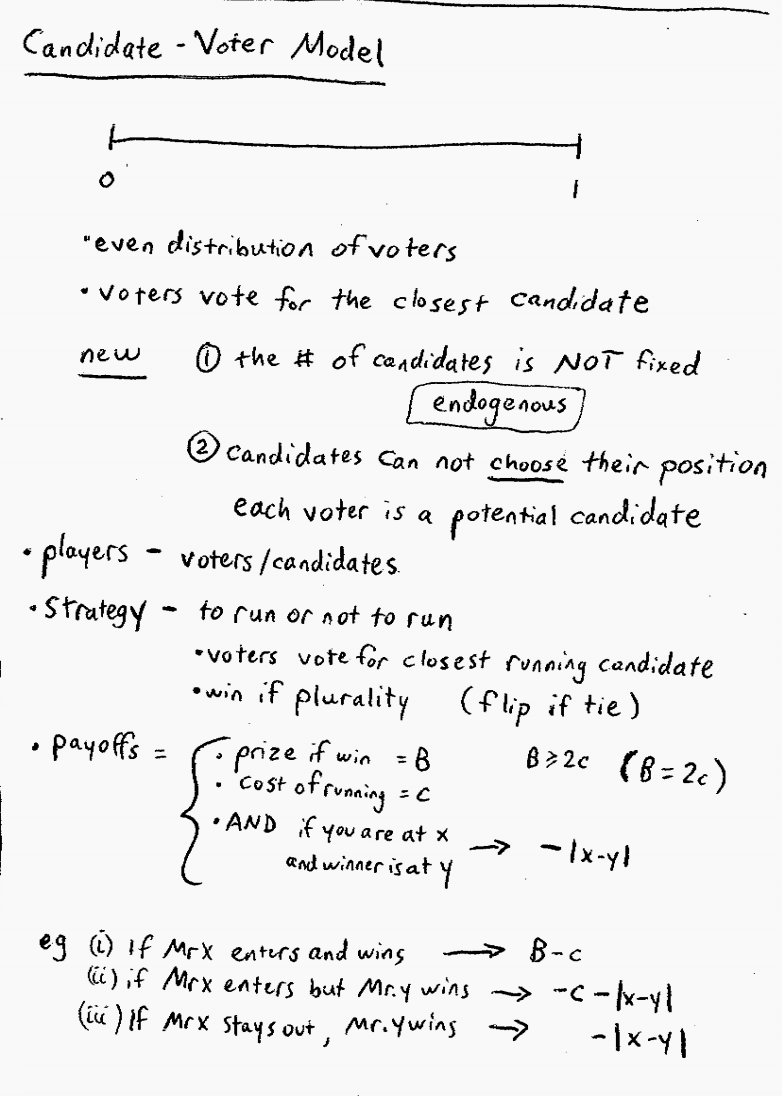 Candidate - Voter Model
0 1
• even distribution of voters
• voters vote for the closest candidate
new ① the # of candidates is NOT fixed
endogenous
② candidates can not choose their position
each voter is a potential candidate
• players – voters/candidates.
• Strategy – to run or not to run
• voters vote for closest running candidate
• win if plurality (flip if tie)
• payoffs = { • prize if win = B B ≥ 2c (B = 2c)
• cost of running = c
• AND if you are at x → -|x-y|
and winner is at y
eg (i) If Mr X enters and wins → B-c
(ii) if Mr X enters but Mr. y wins → -c -|x-y|
(iii) If Mr X stays out, Mr. y wins → -|x-y|